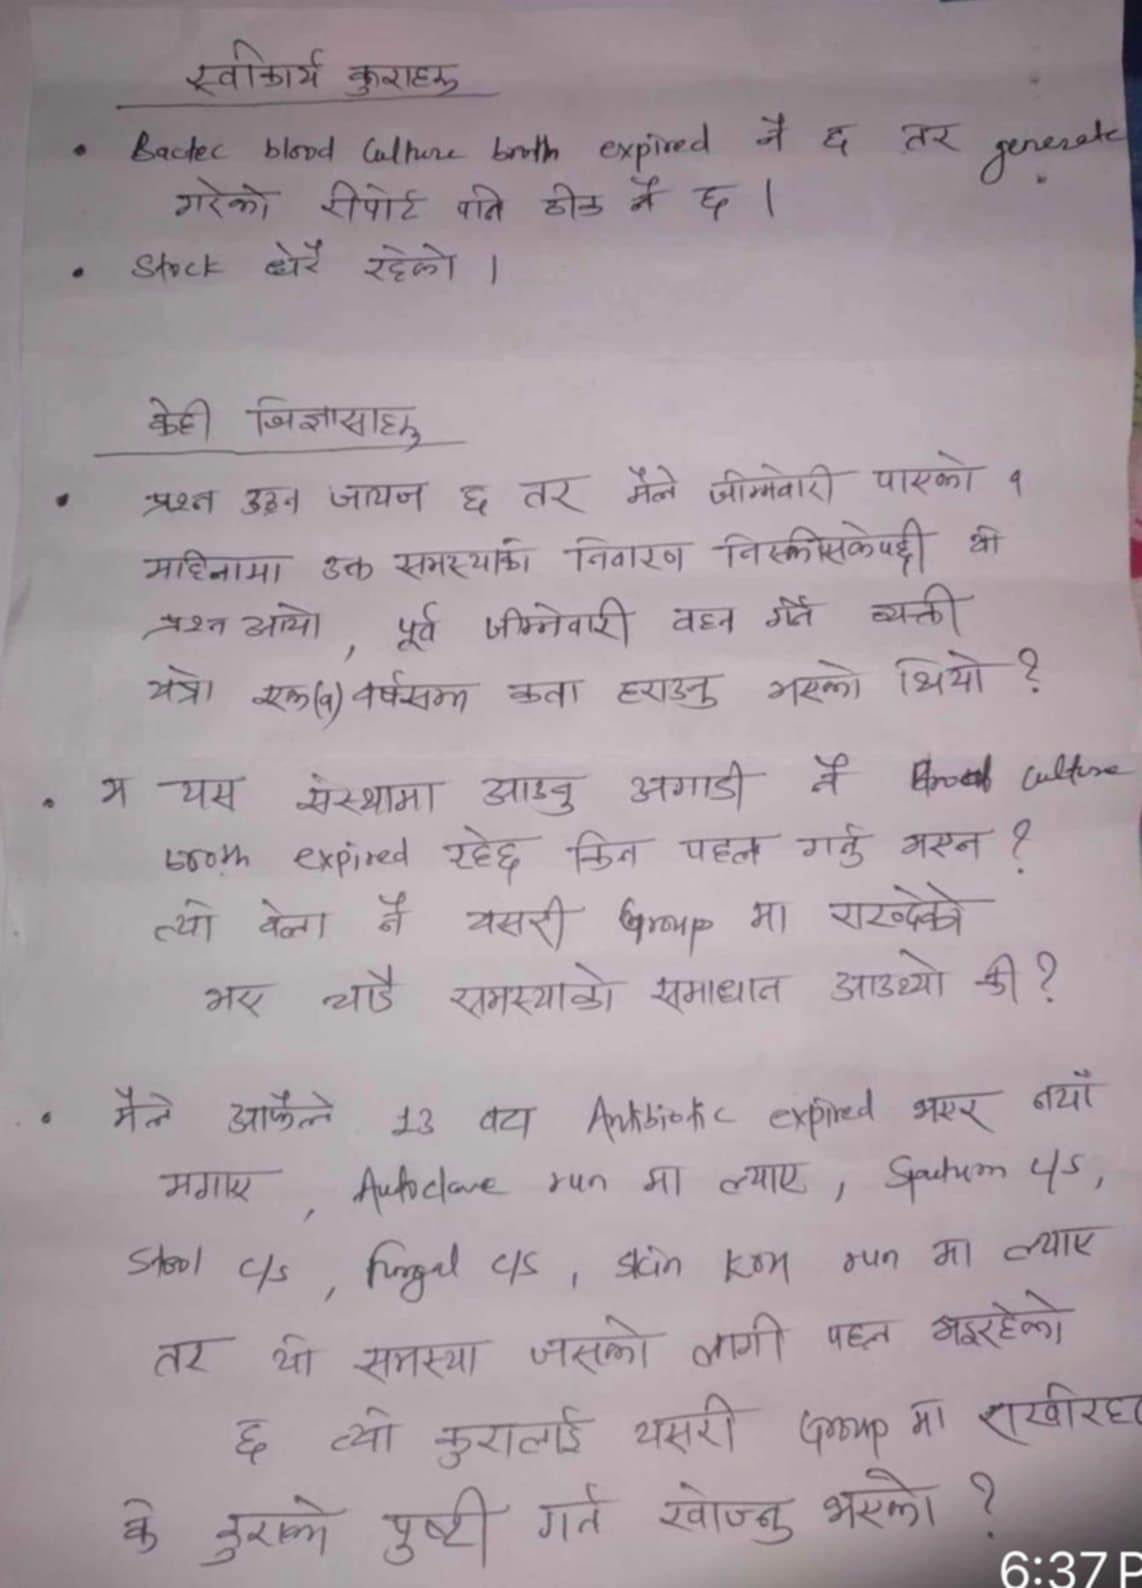 स्वीकार्य कुराहरु
• Bactec blood culture broth expired नै छ तर generate
गरेको रीपोर्ट पनि ठीक नै छ ।
• Stock धेरै रहेको ।
केही जिज्ञासाहरु
• प्रश्न उठ्न जायज छ तर मैले जीम्मेवारी पाएको १
महिनामा उक्त समस्याको निवारण निस्कीसकेपछी यो
प्रश्न आयो , पूर्व जीम्मेवारी वहन गर्ने व्यक्ती
यत्रो एक(१) वर्षसम्म कता हराउनु भएको थियो ?
• म यस संस्थामा आउनु अगाडी नै Blood culture
broth expired रहेछ किन पहल गर्नु भएन ?
त्यो वेला नै यसरी Group मा राखदेको
भए चाडै समस्याको समाधान आउथ्यो की ?
• मैले आफैले 13 वटा Antibiotic expired भएर नयाँ
मगाए , Autoclave run मा ल्याए , Sputum c/s ,
Stool c/s , fungal c/s , skin KOH run मा ल्याए
तर यो समस्या जसको लागी पहल भइरहेको
छ त्यो कुरालाई यसरी Group मा
के कुराको पुष्टी गर्न खोज्नु भएको ?
6:37 P